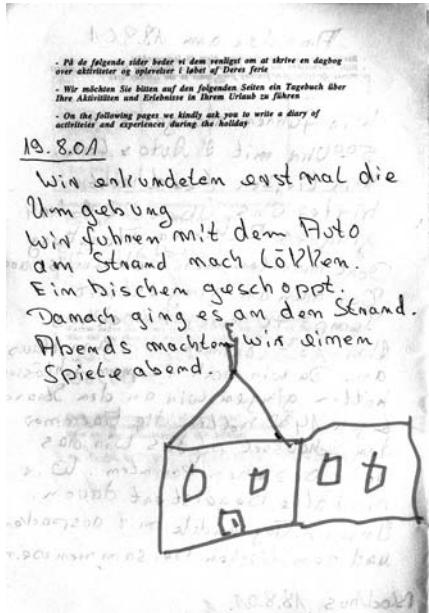 - På de følgende sider beder vi dem venligst om at skrive en dagbog
over aktiviteter og oplevelser i løbet af Deres ferie
- Wir möchten Sie bitten auf den folgenden Seiten ein Tagebuch über
Ihre Aktivitäten und Erlebnisse in Ihrem Urlaub zu führen
- On the following pages we kindly ask you to write a diary of
activiteies and experiences during the holiday
19.8.01
Wir erkundeten erstmal die
Umgebung
Wir fuhren mit dem Auto
am Strand nach Lökken.
Ein bischen geschoppt.
Danach ging es an den Strand.
Abends machten wir einen
Spieleabend.